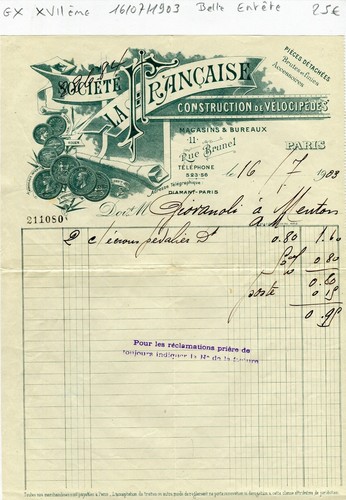 GX XVIIème 16/07/1903 Belle Entête 25€
SOCIÉTÉ
LA FRANÇAISE
PIÈCES DÉTACHÉES
Brutes et Finies
Accessoires
CONSTRUCTION DE VÉLOCIPÈDES
MAGASINS & BUREAUX
11
Rue Brunel
PARIS
TÉLÉPHONE
523-56
le 16 7 1903
Adresse Télégraphique:
DIAMANT-PARIS
211080
Doit M Giovanoli à Menton
A.M.
2 c/ écrous pédalier Dt 0.80 1.60
0.80
0.80
poste 0.15
0.95
Pour les réclamations prière de
toujours indiquer le No de la facture